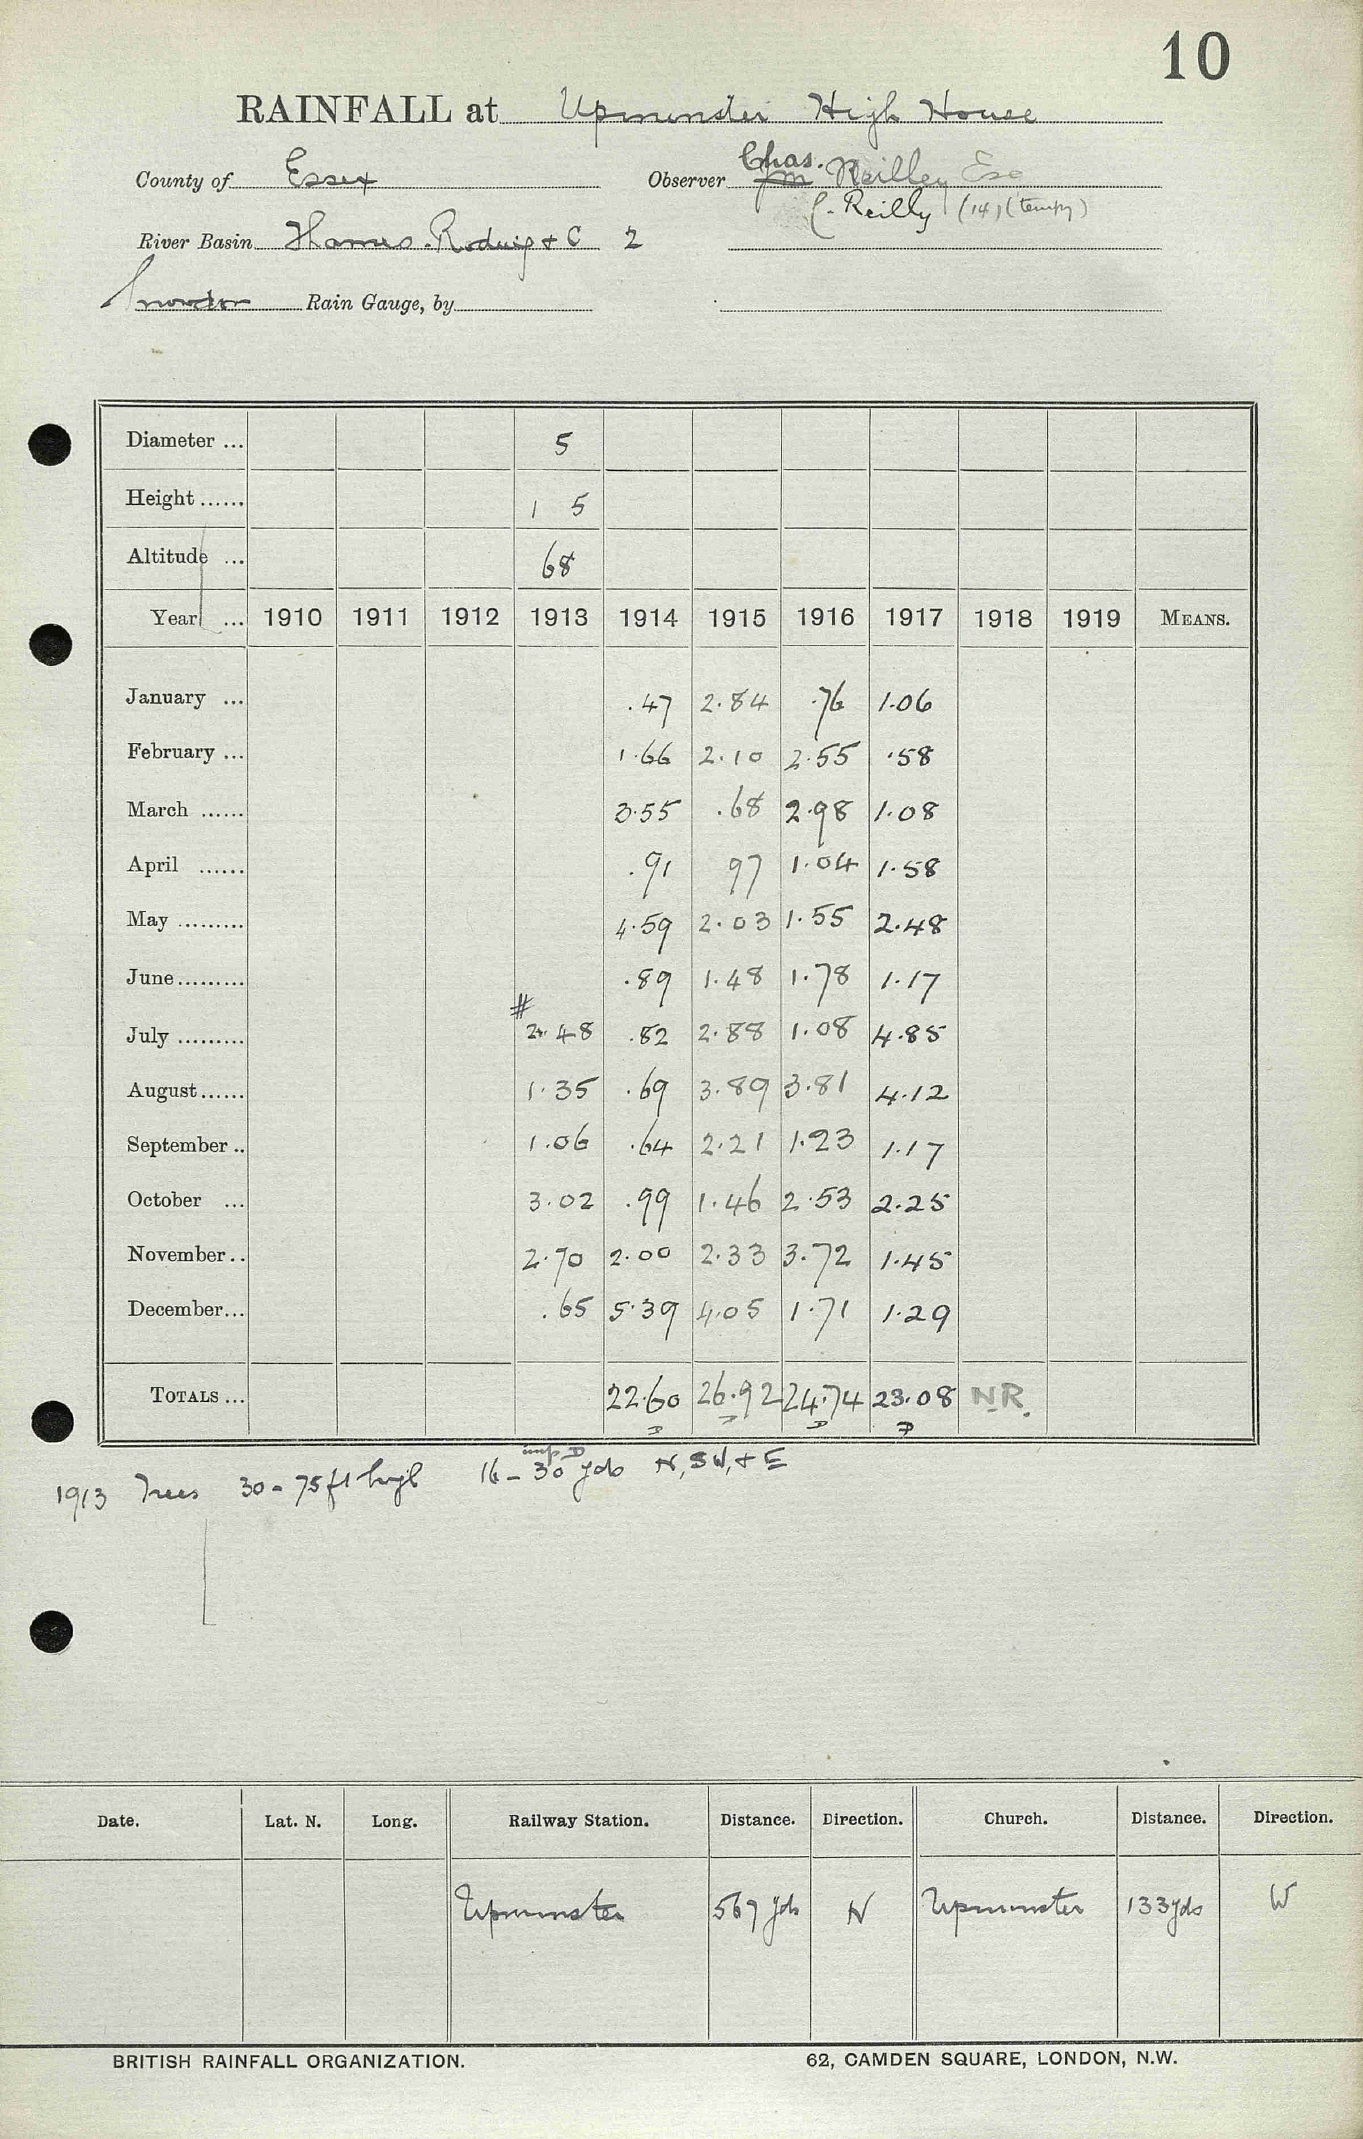 10
RAINFALL at Upminster High House
County of Essex Observer Chas. Reilley Esq
C. Reilly (14) (tempy)
River Basin Thames. Roding + C 2
Snowdon Rain Gauge, by
Diameter ... 5
Height ...... 1 5
Altitude ... 68
Year ... 1910 1911 1912 1913 1914 1915 1916 1917 1918 1919 MEANS.
January ... .47 2.84 .76 1.06
February ... 1.66 2.10 2.55 .58
March ...... 3.55 .68 2.98 1.08
April ...... .91 97 1.04 1.58
May ......... 4.59 2.03 1.55 2.48
June ......... .89 1.48 1.78 1.17
#
July ......... 2.48 .82 2.88 1.08 4.85
August ...... 1.35 .69 3.89 3.81 4.12
September .. 1.06 .64 2.21 1.23 1.17
October ... 3.02 .99 1.46 2.53 2.25
November .. 2.70 2.00 2.33 3.72 1.45
December ... .65 5.39 4.05 1.71 1.29
TOTALS ... 22.60 26.92 24.74 23.08 N.R.
1913 Trees 30 - 75 ft high 16 - 30 yds N, SW, + E
Date. Lat. N. Long. Railway Station. Distance. Direction. Church. Distance. Direction.
Upminster 567 yds N Upminster 133 yds W
BRITISH RAINFALL ORGANIZATION. 62, CAMDEN SQUARE, LONDON, N.W.